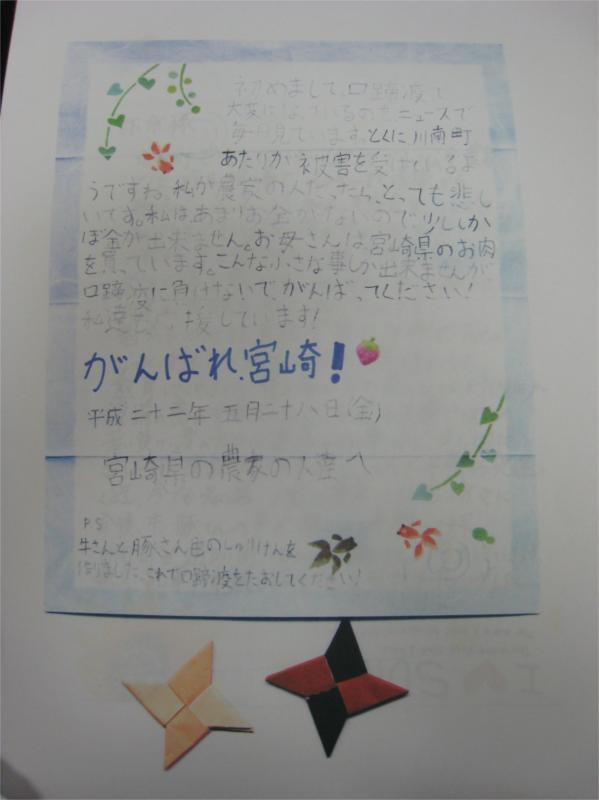 初めまして、口蹄疫で
大変になっているのをニュースで
毎日見ています。とくに川南町
あたりが被害を受けているよ
うですね。私が農家の人だったら、とっても悲し
いです。私はあまりお金がないので少ししか
ぼ金が出来ません。お母さんは宮崎県のお肉
を買っています。こんな小さな事しか出来ませんが
口蹄疫に負けないで、がんばってください!
私達 援しています!
がんばれ、宮崎!
平成二十二年 五月二十八日(金)
宮崎県の農家の人達へ
PS
牛さんと豚さん色のしゅりけんを
作りました。これで口蹄疫をたおしてください!
I SU